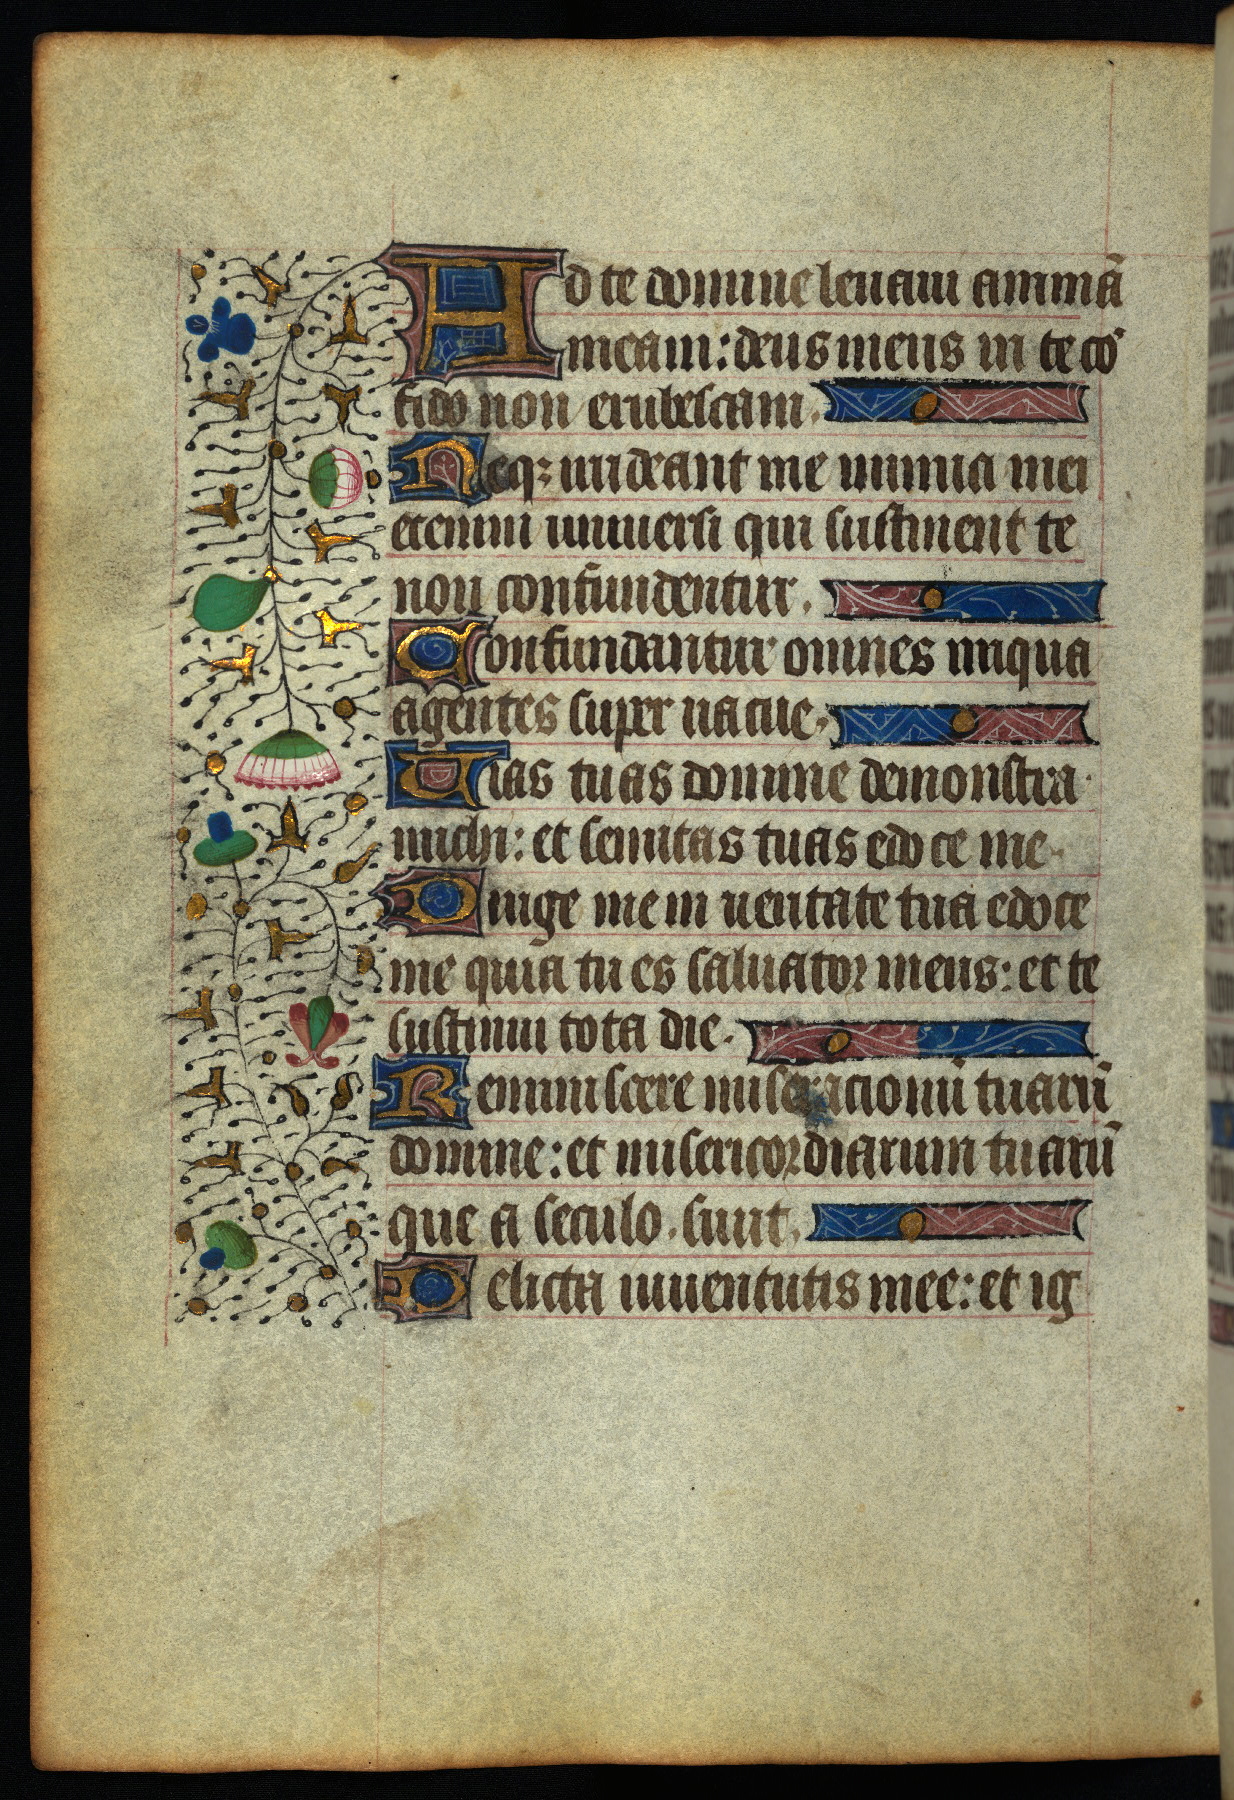 Ad te domine leuaui animā
meam: deus meus in te cō
fido non erubescam.
Neqꝫ irrideant me inimici mei
etenim uniuersi qui sustinent te
non confundentur.
Confundantur omnes iniqua
agentes super uacue.
Uias tuas domine demonstra
michi: et semitas tuas edoce me.
Dirige me in ueritate tua edoce
me quia tu es saluator meus: et te
sustinui tota die.
Reminiscere miseracionū tuarū
domine: et misericordiarum tuarū
que a seculo. sunt.
Delicta iuuentutis mee: et ig